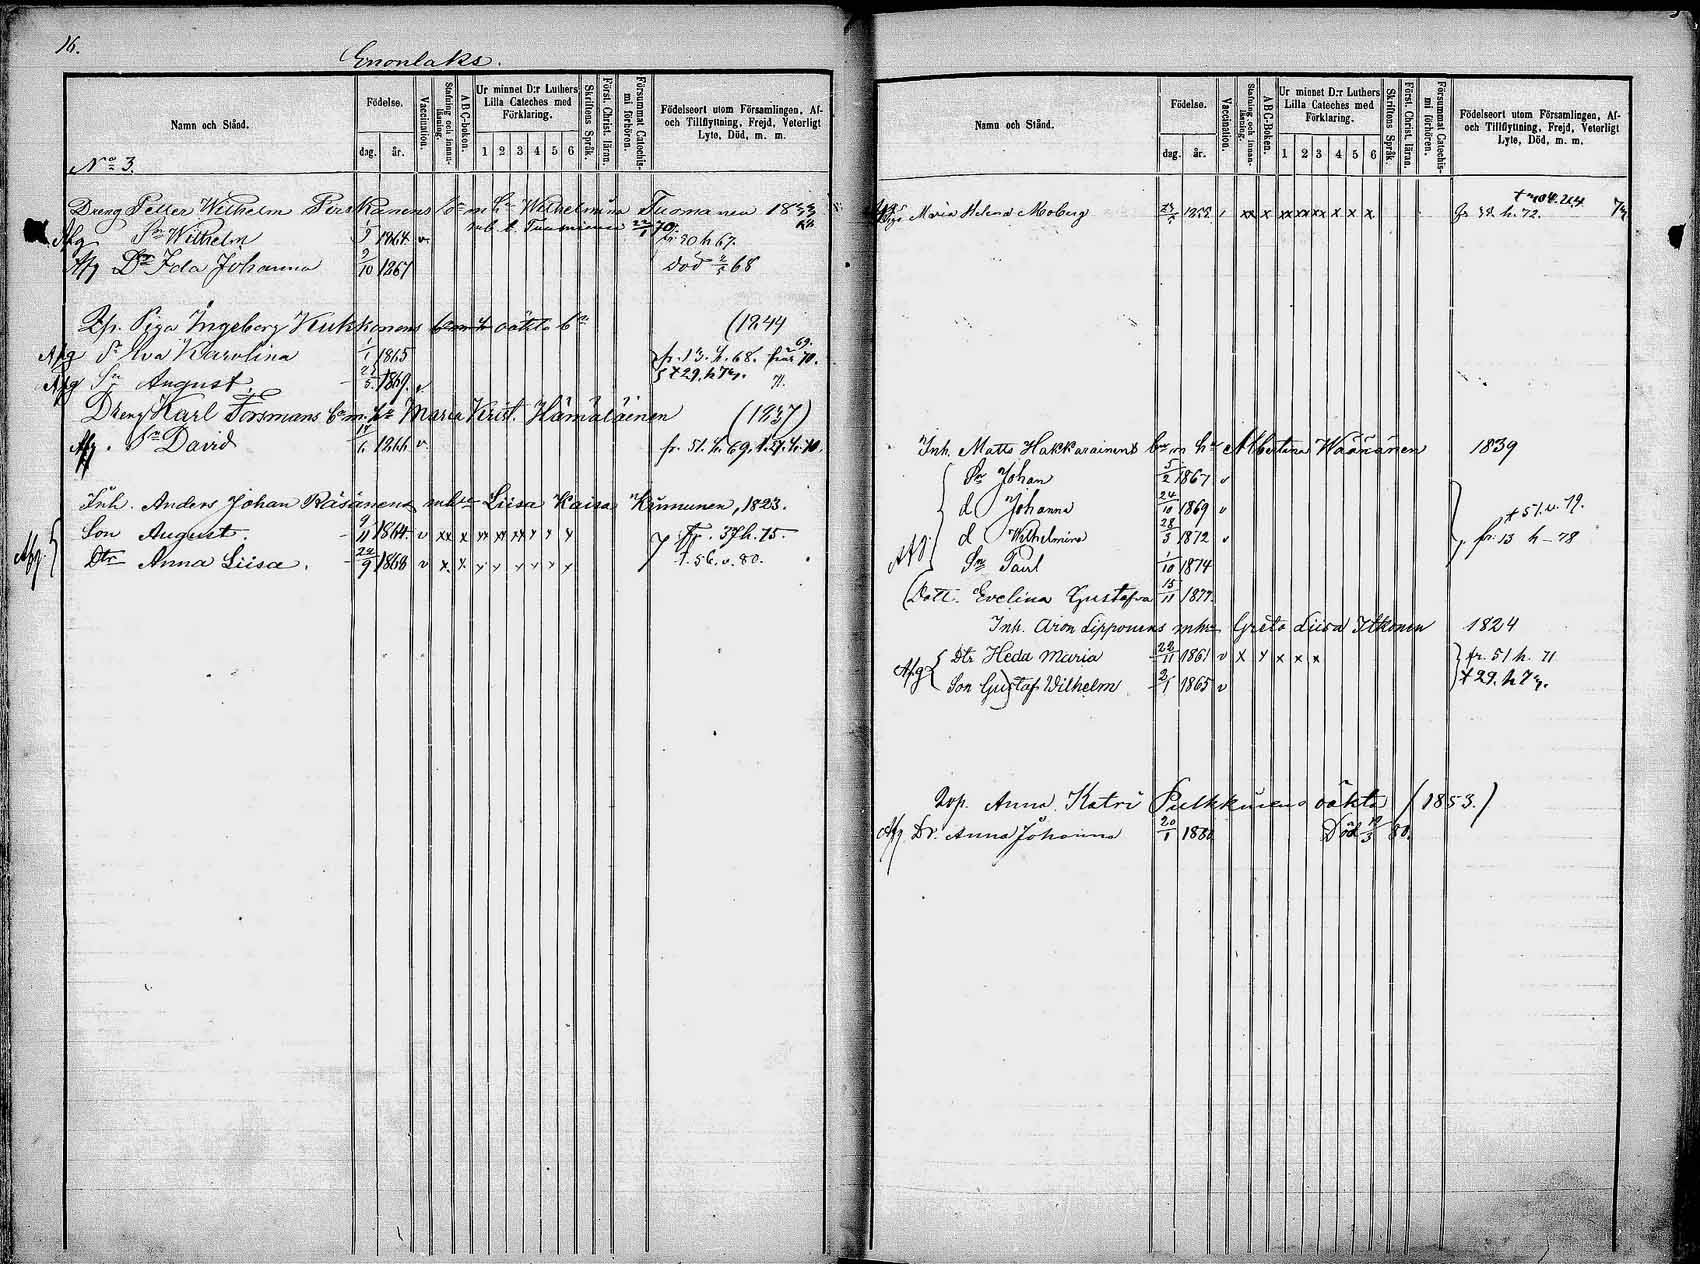 16.
Enonlaks.
Namn och Stånd.
Födelse.
dag.
år.
Vaccination.
Stafning och innanläsning.
ABC-boken.
Ur minnet D:r Luthers Lilla Cateches med Förklaring.
1 2 3 4 5 6
Skriftens Språk.
Först. Christ. läran.
Försummat Catechismi förhören.
Födelseort utom Församlingen, Af- och Tillflyttning, Frejd, Veterligt Lyte, Död, m. m.
No 3.
Dreng Petter Wilhelm m h Wilhelmina Tuomanen
Afg Sn Wilhelm 1864 v fr. 20 h 67.
Afg Dr Ida Johanna 9/10 1867 död 68
Piga Ingeborg Kukkonens oäkta bn (1844
Afg Eva Karolina 1/1 1865 fr. 13. h. 68. 70.
Afg Sn August. 1869. v t 29. h 71.
Dreng Karl Forsmans bn m. hu Maria Krist. Hämäläinen (1837)
Afg. Sn David 1866 v fr. 51. h. 69. t. h. 70.
Inh. Anders Johan Räsänens mhu Liisa Kaisa Kinnunen, 1823.
Afg. Son August. 9/11 1864 v xx x xx x xx x x x fr. 37 h. 75.
Dtr Anna Liisa. 1868 v x x x x x x x x t. 56. v. 80.
Namn och Stånd.
Födelse.
dag.
år.
Vaccination.
Stafning och innanläsning.
ABC-Boken.
Ur minnet D:r Luthers Lilla Cateches med Förklaring.
1 2 3 4 5 6
Skriftens Språk.
Först. Christ. läran.
Försummat Catechismi förhören.
Födelseort utom Församlingen, Af- och Tillflyttning, Frejd, Veterligt Lyte, Död, m. m.
Maria Helena Moberg xx x xx xx x x x x h. 72.
Inh. Matts Hakkarainens bn m hu Albertina Väänänen 1839
Sn Johan 5/2 1867 v
d Johanna 24/10 1869 v t 51. v. 79.
Afg. d Wilhelmina 28/3 1872 v fr. 13 h - 78
Sn Paul 1/10 1874
Dott. Evelina Gustafva 15/11 1877.
Inh. Aron Lipponens mhu Greta Liisa Itkonen 1824
Afg Dtr Heda Maria 22/11 1861 v x x x x x fr. 51 h. 71
Son Gustaf Wilhelm 1865 v t 29. h 71.
Anna Katri Pulkkinens oäkta (1853.)
Afg. Dr. Anna Johanna 20/1 1880 Död 80.